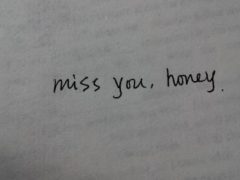 miss you, honey.